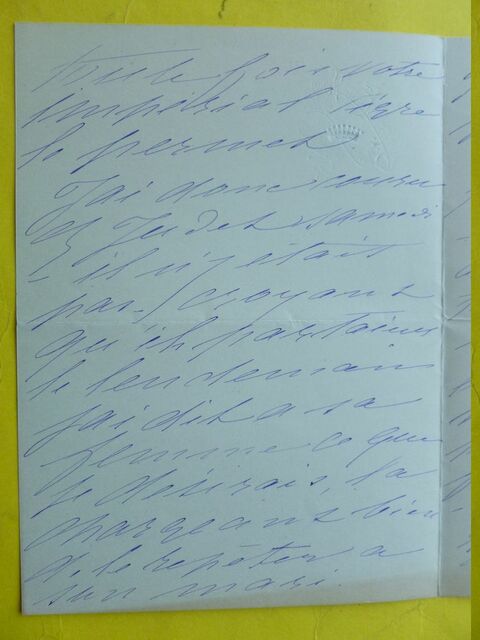 toutefois votre
impérial
le permet
J'ai donc couru
et jeudi et samedi
il n'y était
pas. croyant
qu'il partait
le lendemain
j'ai dit a sa
femme ce que
je désirais, la
chargeant bien
de le repéter a
son mari.